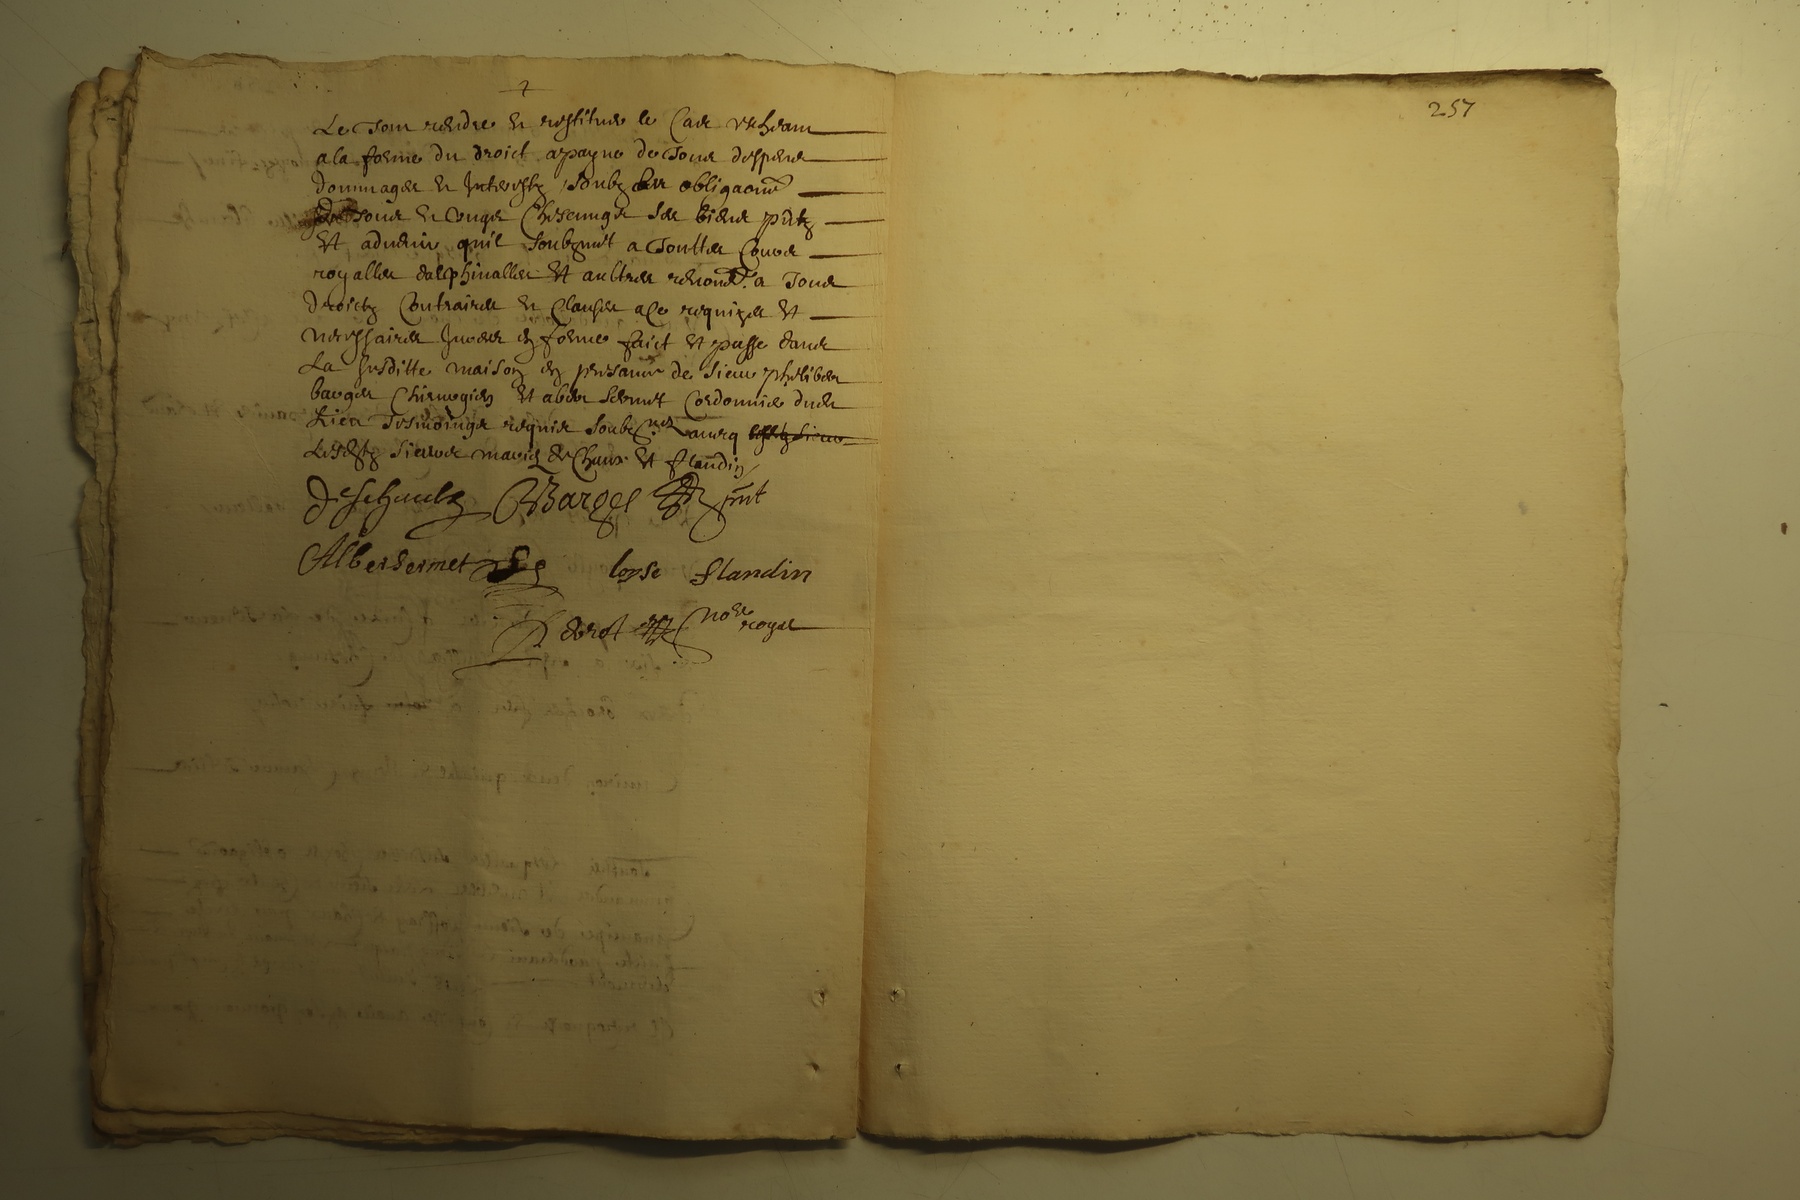 257
Le tout rendre et restituer le cas
a la forme du droict a payne de tous despens
dommages et interestz soubz les obligaons
de tous et ungs chescungs ses biens pntz
et advenir quil soubzmet a touttes cours
royalles dalphinalles et aultres renonce a tous
droictz contraires et clauses a ce requizes et
necessaires en forme faict et passe dans
La susditte maison en presance de sieur phelibert
barges chirurgien et albert sermet cordonnier dudt
Lieu tesmoings requis soubz avecq
Lesdtz sieurs et flandin
Deschaulx Barges pnt
Albersermet loyse flandin
nore royal